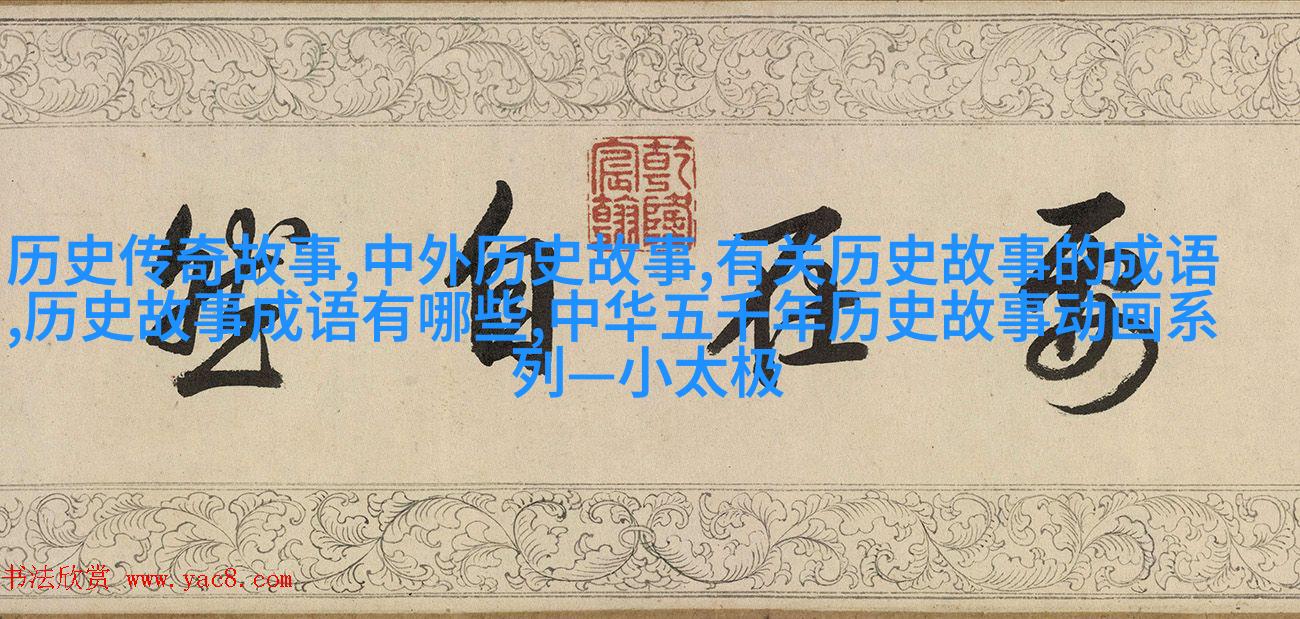 乾隆宸翰
要在自然
历史传奇故事,中外历史故事,有关历史故事的成语
,历史故事成语有哪些,中华五千年历史故事动画系
列—小太极
书法欣赏 www.yac8.com